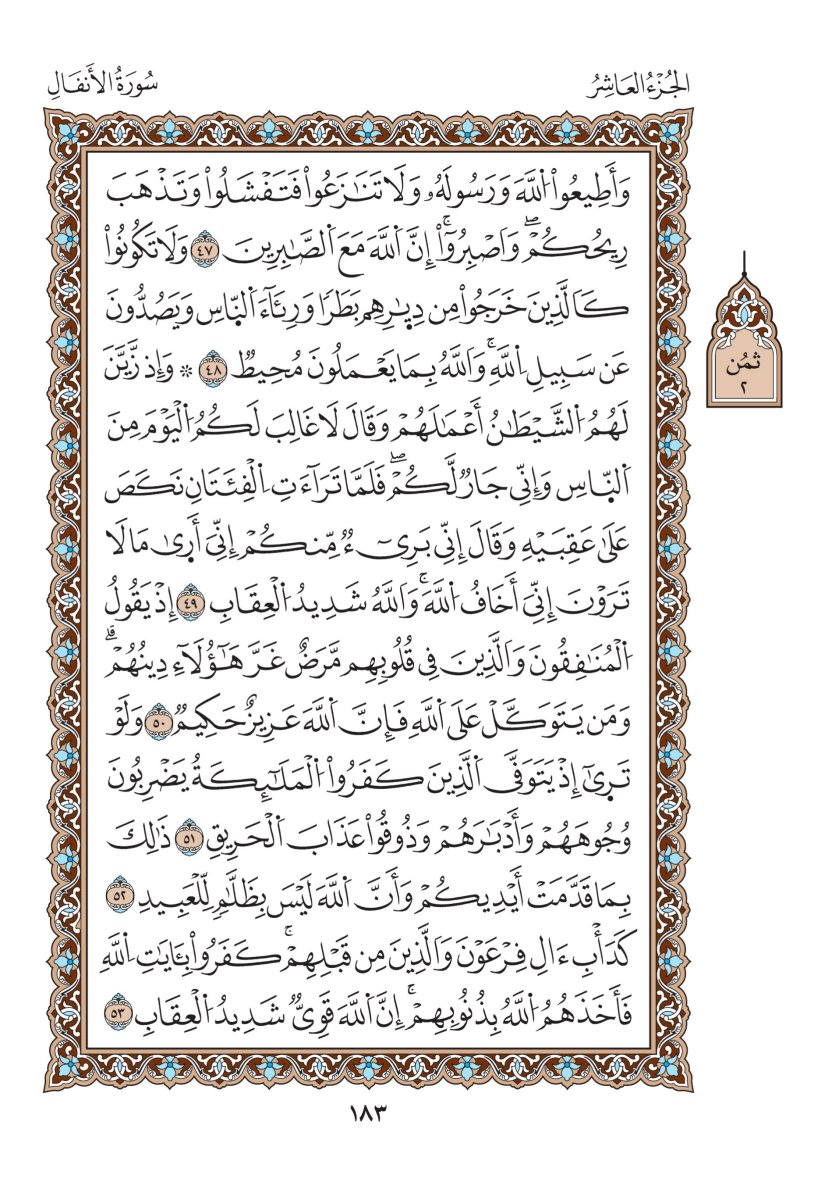 الجُزْءُ العَاشِرُ
سُورَةُ الأَنفَالِ
وَأَطِيعُواْ اُللَّهَ وَرَسُولَهُۥ وَلَا تَنَٰزَعُواْ فَتَفْشَلُواْ وَتَذْهَبَ
رِيحُكُمْۖ وَاَصْبِرُوٓاْۚ إِنَّ اَللَّهَ مَعَ اَلصَّٰبِرِينَ ٤٧ وَلَا تَكُونُواْ
كَالَّذِينَ خَرَجُواْ مِن دِيٰ۪رِهِم بَطَرٗا وَرِئَآءَ اَلنَّاسِ وَيَصُدُّونَ
عَن سَبِيلِ اِللَّهِۚ وَاَللَّهُ بِمَا يَعْمَلُونَ مُحِيطٞ ٤٨ * وَإِذ زَّيَّنَ
لَهُمُ اُلشَّيْطَٰنُ أَعْمَٰلَهُمْ وَقَالَ لَا غَالِبَ لَكُمُ اُلْيَوْمَ مِنَ
اَلنّ۪اسِ وَإِنِّي جَارٞ لَّكُمْۖ فَلَمَّا تَرَآءَتِ اِلْفِئَتَانِ نَكَصَ
عَلَىٰ عَقِبَيْهِ وَقَالَ إِنِّي بَرِيٓءٞ مِّنكُمْ إِنِّيَ أَر۪ىٰ مَا لَا
تَرَوْنَ إِنِّيَ أَخَافُ اُللَّهَۚ وَاَللَّهُ شَدِيدُ اُلْعِقَابِ ٤٩ إِذْ يَقُولُ
اُلْمُنَٰفِقُونَ وَاَلَّذِينَ فِي قُلُوبِهِم مَّرَضٌ غَرَّ هَٰٓؤُلَآءِ دِينُهُمْۗ
وَمَن يَتَوَكَّلْ عَلَى اَللَّهِ فَإِنَّ اَللَّهَ عَزِيزٌ حَكِيمٞ ٥٠ وَلَوْ
تَر۪ىٰٓ إِذْ يَتَوَفَّى اَلَّذِينَ كَفَرُواْ اُلْمَلَٰٓئِكَةُ يَضْرِبُونَ
وُجُوهَهُمْ وَأَدْبَٰرَهُمْ وَذُوقُواْ عَذَابَ اَلْحَرِيقِ ٥١ ذَٰلِكَ
بِمَا قَدَّمَتْ أَيْدِيكُمْ وَأَنَّ اَللَّهَ لَيْسَ بِظَلَّٰمٖ لِّلْعَبِيدِ ٥٢
كَدَأْبِ ءَالِ فِرْعَوْنَ وَاَلَّذِينَ مِن قَبْلِهِمْۚ كَفَرُواْ بِـَٔايَٰتِ اِللَّهِ
فَأَخَذَهُمُ اُللَّهُ بِذُنُوبِهِمْۚ إِنَّ اَللَّهَ قَوِيّٞ شَدِيدُ اُلْعِقَابِ ٥٣
ثُمُن
٢
١٨٣